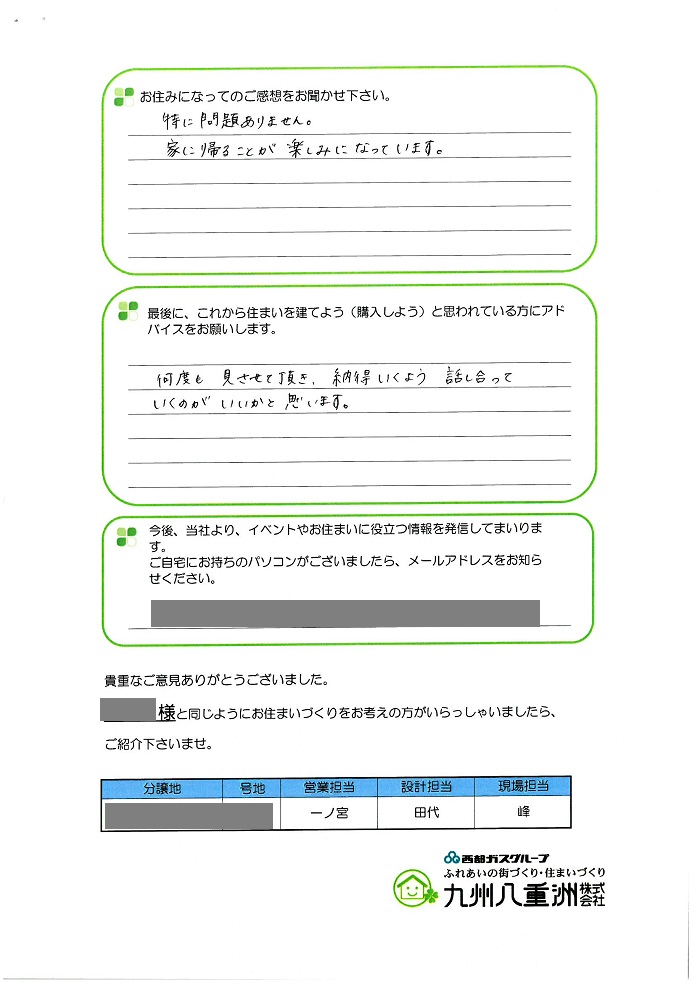 お住みになってのご感想をお聞かせ下さい。
特に問題ありません。
家に帰ることが楽しみになっています。
最後に、これから住まいを建てよう（購入しよう）と思われている方にアド
バイスをお願いします。
何度も見させて頂き、納得いくよう話し合って
いくのがいいかと思います。
今後、当社より、イベントやお住まいに役立つ情報を発信してまいりま
す。
ご自宅にお持ちのパソコンがございましたら、メールアドレスをお知ら
せください。
貴重なご意見ありがとうございました。
様と同じようにお住まいづくりをお考えの方がいらっしゃいましたら、
ご紹介下さいませ。
分譲地 号地 営業担当 設計担当 現場担当
一ノ宮 田代 峰
西部ガスグループ
ふれあいの街づくり・住まいづくり
九州八重洲株式会社